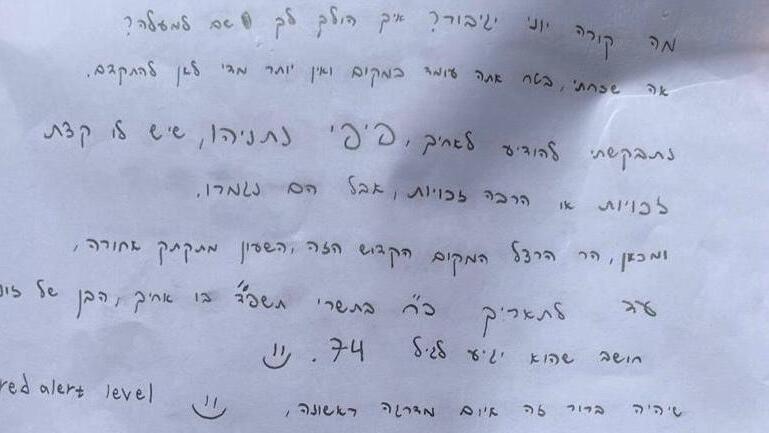 מה קורה יוני יגיבור? איך הולך לך שם למעלה?
אה שכחתי, בטח אתה עומד במקום ואין יותר מדי לאן להתקדם.
נתבקשתי להודיע לאחיך, פיפי נתניהו, שיש לו קצת
זכויות או הרבה זכויות, אבל הם נגמרו.
ומכאן, הר הרצל המקום הקדוש הזה, השעון מתקתק אחורה,
עד לתאריך כ"ח בתשרי תשפ"ד בו אחיך, הבן של
חושב שהוא יגיע לגיל 74. :)
שיהיה ברור זה איום מדרגה ראשונה, :) red alert level